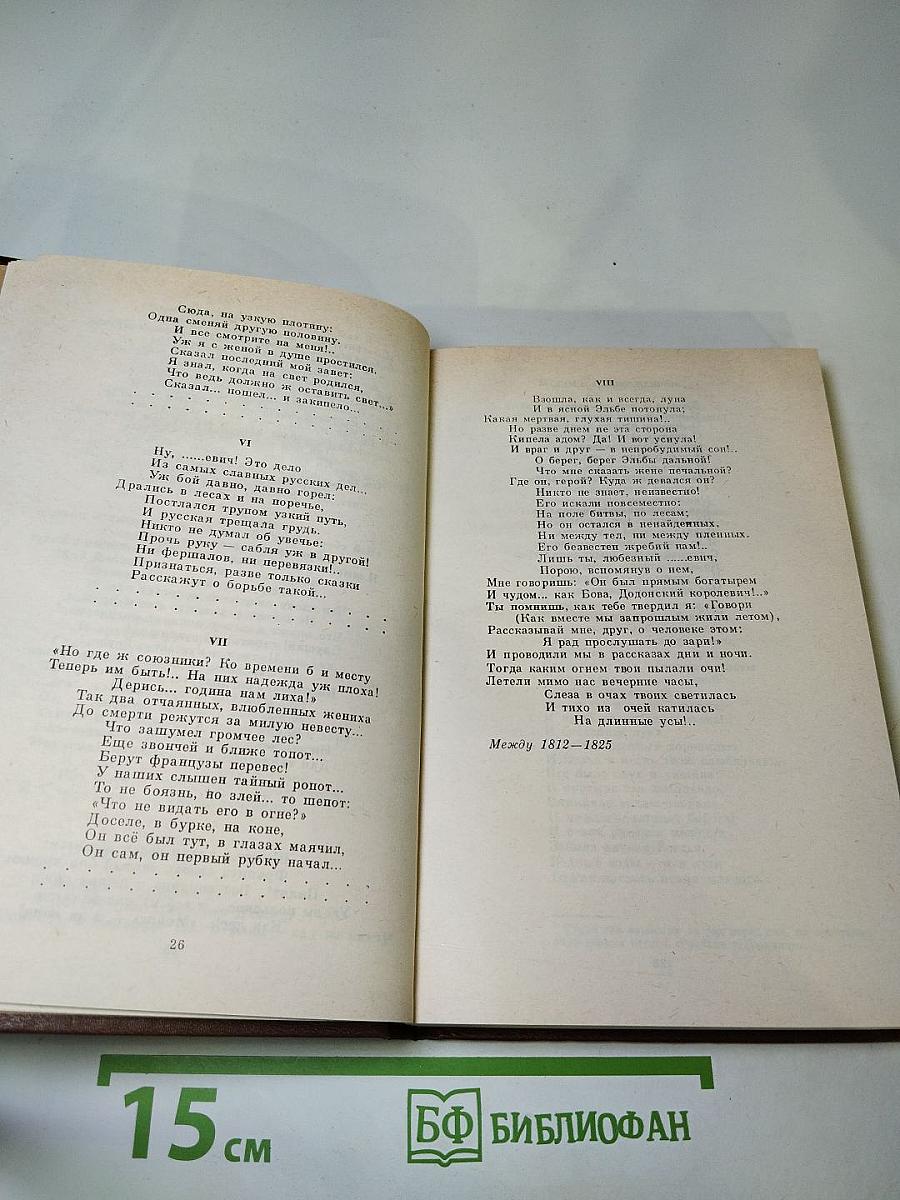 Сюда, на узкую плотину:
Одна сменяй другую половину.
И все смотрите на меня!..
Уж я с женой в душе простился,
Сказал последний мой завет:
Я знал, когда на свет родился,
Что ведь должно ж оставить свет...»
Сказал... пошел... и закипело...
. . . . . . . . . . . . . . .
. . . . . . . . . . . . . . .
VI
Ну, ......евич! Это дело
Из самых славных русских дел...
Уж бой давно, давно горел:
Дрались в лесах и на поречье,
Постлался трупом узкий путь,
И русская трещала грудь.
Никто не думал об увечье:
Прочь руку — сабля уж в другой!
Ни фершалов, ни перевязки!..
Признаться, разве только сказки
Расскажут о борьбе такой...
. . . . . . . . . . . . . . .
. . . . . . . . . . . . . . .
VII
«Но где ж союзники? Ко времени б и месту
Теперь им быть!.. На них надежда уж плоха!
Дерись... година нам лиха!»
Так два отчаянных, влюбленных жениха
До смерти режутся за милую невесту...
Что зашумел громчее лес?
Еще звончей и ближе топот...
Берут французы перевес!
У наших слышен тайный ропот...
То не боязнь, но злей... то шепот:
«Что не видать его в огне?»
Доселе, в бурке, на коне,
Он всё был тут, в глазах маячил,
Он сам, он первый рубку начал...
. . . . . . . . . . . . . . .
. . . . . . . . . . . . . . .
26
VIII
Взошла, как и всегда, луна
И в ясной Эльбе потонула;
Какая мертвая, глухая тишина!..
Но разве днем не эта сторона
Кипела адом? Да! И вот уснула!
И враг и друг — в непробудимый сон!..
О берег, берег Эльбы дальной!
Что мне сказать жене печальной?
Где он, герой? Куда ж девался он?
Никто не знает, неизвестно!
Его искали повсеместно:
На поле битвы, по лесам;
Но он остался в ненайденных,
Ни между тел, ни между пленных.
Его безвестен жребий нам!..
Лишь ты, любезный ......евич,
Порою, вспомянув о нем,
Мне говоришь: «Он был прямым богатырем
И чудом... как Бова, Додонский королевич!..»
Ты помнишь, как тебе твердил я: «Говори
(Как вместе мы запрошлым жили летом),
Рассказывай мне, друг, о человеке этом:
Я рад прослушать до зари!»
И проводили мы в рассказах дни и ночи.
Тогда каким огнем твои пылали очи!
Летели мимо нас вечерние часы,
Слеза в очах твоих светилась
И тихо из очей катилась
На длинные усы!..
Между 1812—1825
15 см
БФ БИБЛИОФАН